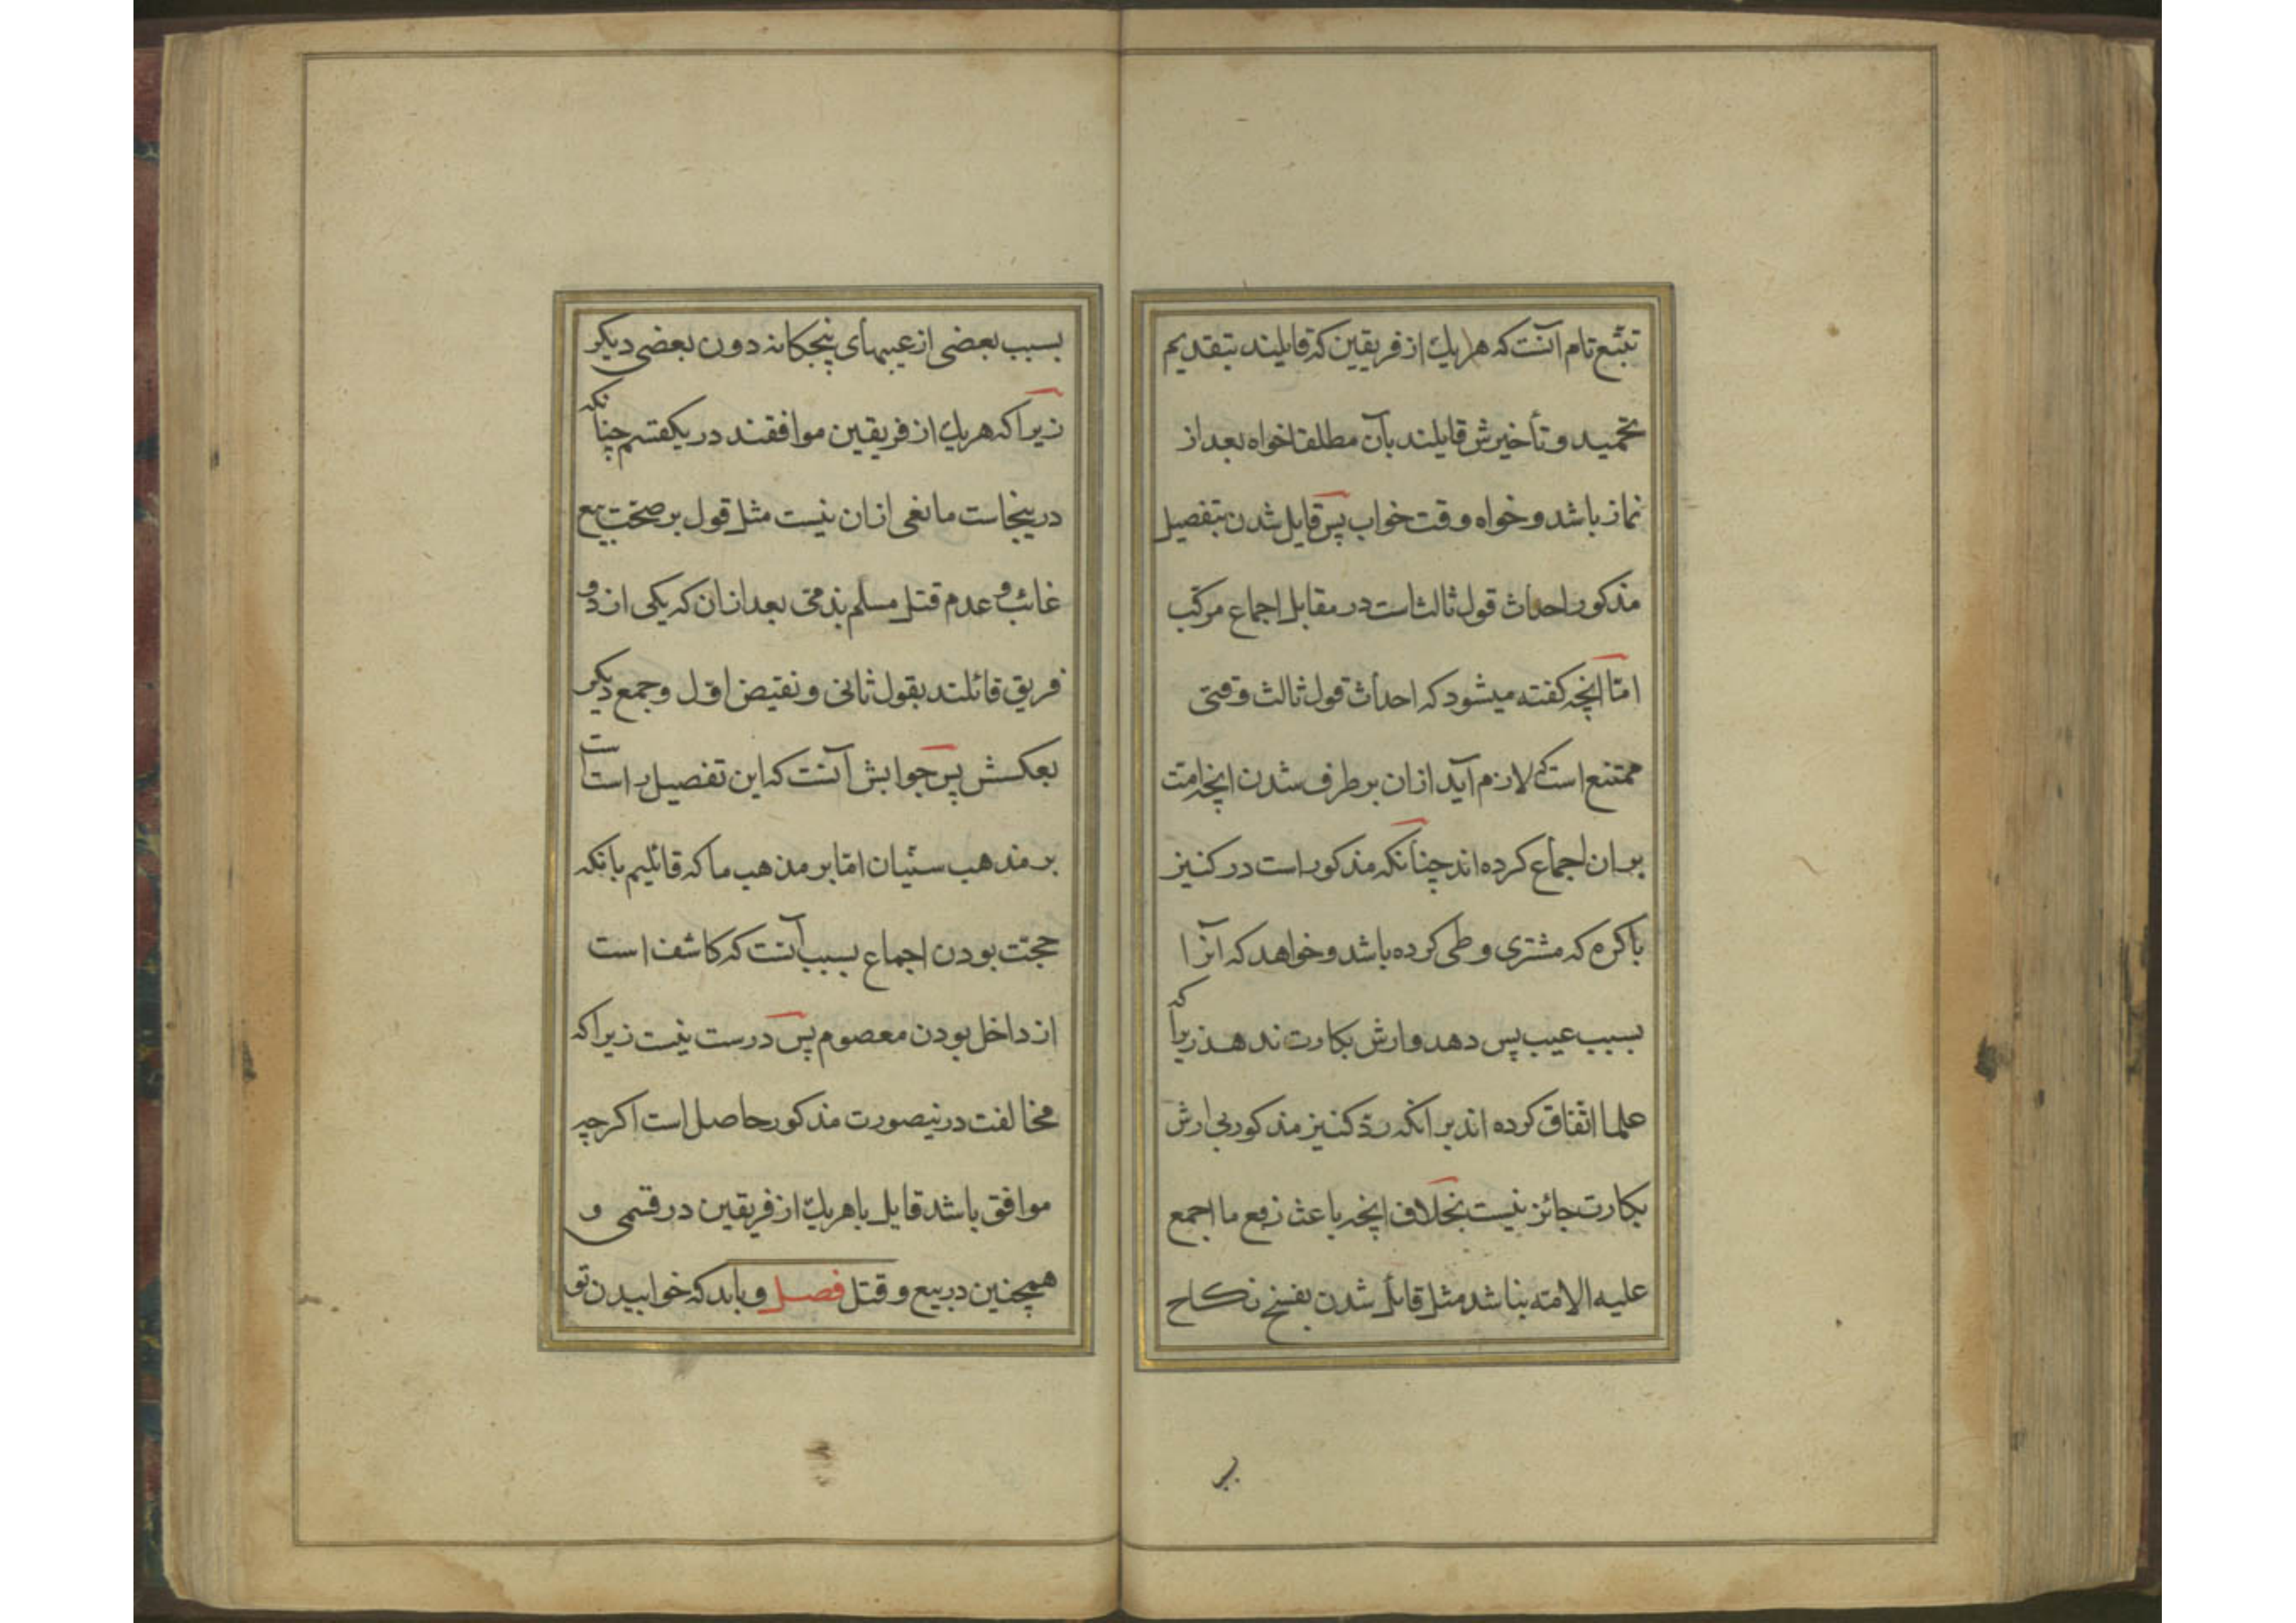 تتبّع تام آنست که هر یك از فریقین که قایلند بتقدیم
تحمید و تأخیرش قایلند بآن مطلقا خواه بعد از
نماز باشد و خواه وقت خواب پس قایل شدن بتفصیل
مذکور احداث قول ثالث است در مقابل اجماع مرکّب
امّا آنچه کفته میشود که احداث قول ثالث وقتی
ممتنع است که لازم آید از ان بر طرف شدن آنچه امّت
بر ان اجماع کرده اند چنانکه مذکور است در کنیز
باکره که مشتری وطی کرده باشد و خواهد که آنرا
بسبب عیب پس دهد و ارش بکارت ندهد زیرا که
علما اتّفاق کرده اند بر آنکه ردّ کنیز مذکور بی ارش
بکارت جائز نیست بخلاف آنچه باعث رفع ما اجمع
علیه الامّه نباشد مثل قائل شدن بفسخ نکاح
بر
بسبب بعضی از عیبهای پنجکانه دون بعضی دیکر
زیرا که هر یك از فریقین موافقند در یکقسم چنانکه
در ینجاست مانعی از ان نیست مثل قول بر صحّت بیع
غائب و عدم قتل مسلم بذمّی بعد از ان که یکی از دو
فریق قائلند بقول ثانی و نقیض اوّل و جمع دیکر
بعکسش پس جوابش آنست که این تفصیل راست است
بر مذهب سنّیان امّا بر مذهب ما که قائلیم بانکه
حجّت بودن اجماع بسبب آنست که کاشف است
از داخل بودن معصوم پس درست نیست زیرا که
مخالفت در نیصورت مذکور حاصل است اکرچه
موافق باشد قایل با هر یك از فریقین در قسمی و
همچنین در بیع و قتل فصل و باید که خوابیدن تو